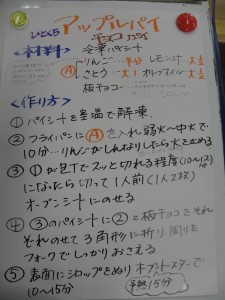 ひとくち アップルパイ
チョコ
<材料> 冷凍パイシート
Ⓐ りんご…半分 レモン汁 大1
さとう…大1 オリーブオイル 大1
板チョコ…
<作り方>
① パイシートを室温で解凍。
② フライパンにⒶを入れ弱火〜中火で
10分…りんごがしんなりしたら火を止める
③ ①が包丁でスッと切れる程度(10分)
になったら切って1人前(1人2枚)
オーブンシートにのせる
④ ③のパイシートに②と板チョコをそれ
ぞれのせて3角形に折り、周りを
フォークでしっかりおさえる
⑤ 表面にシロップをぬり オーブントースターで
10〜15分 予熱15分